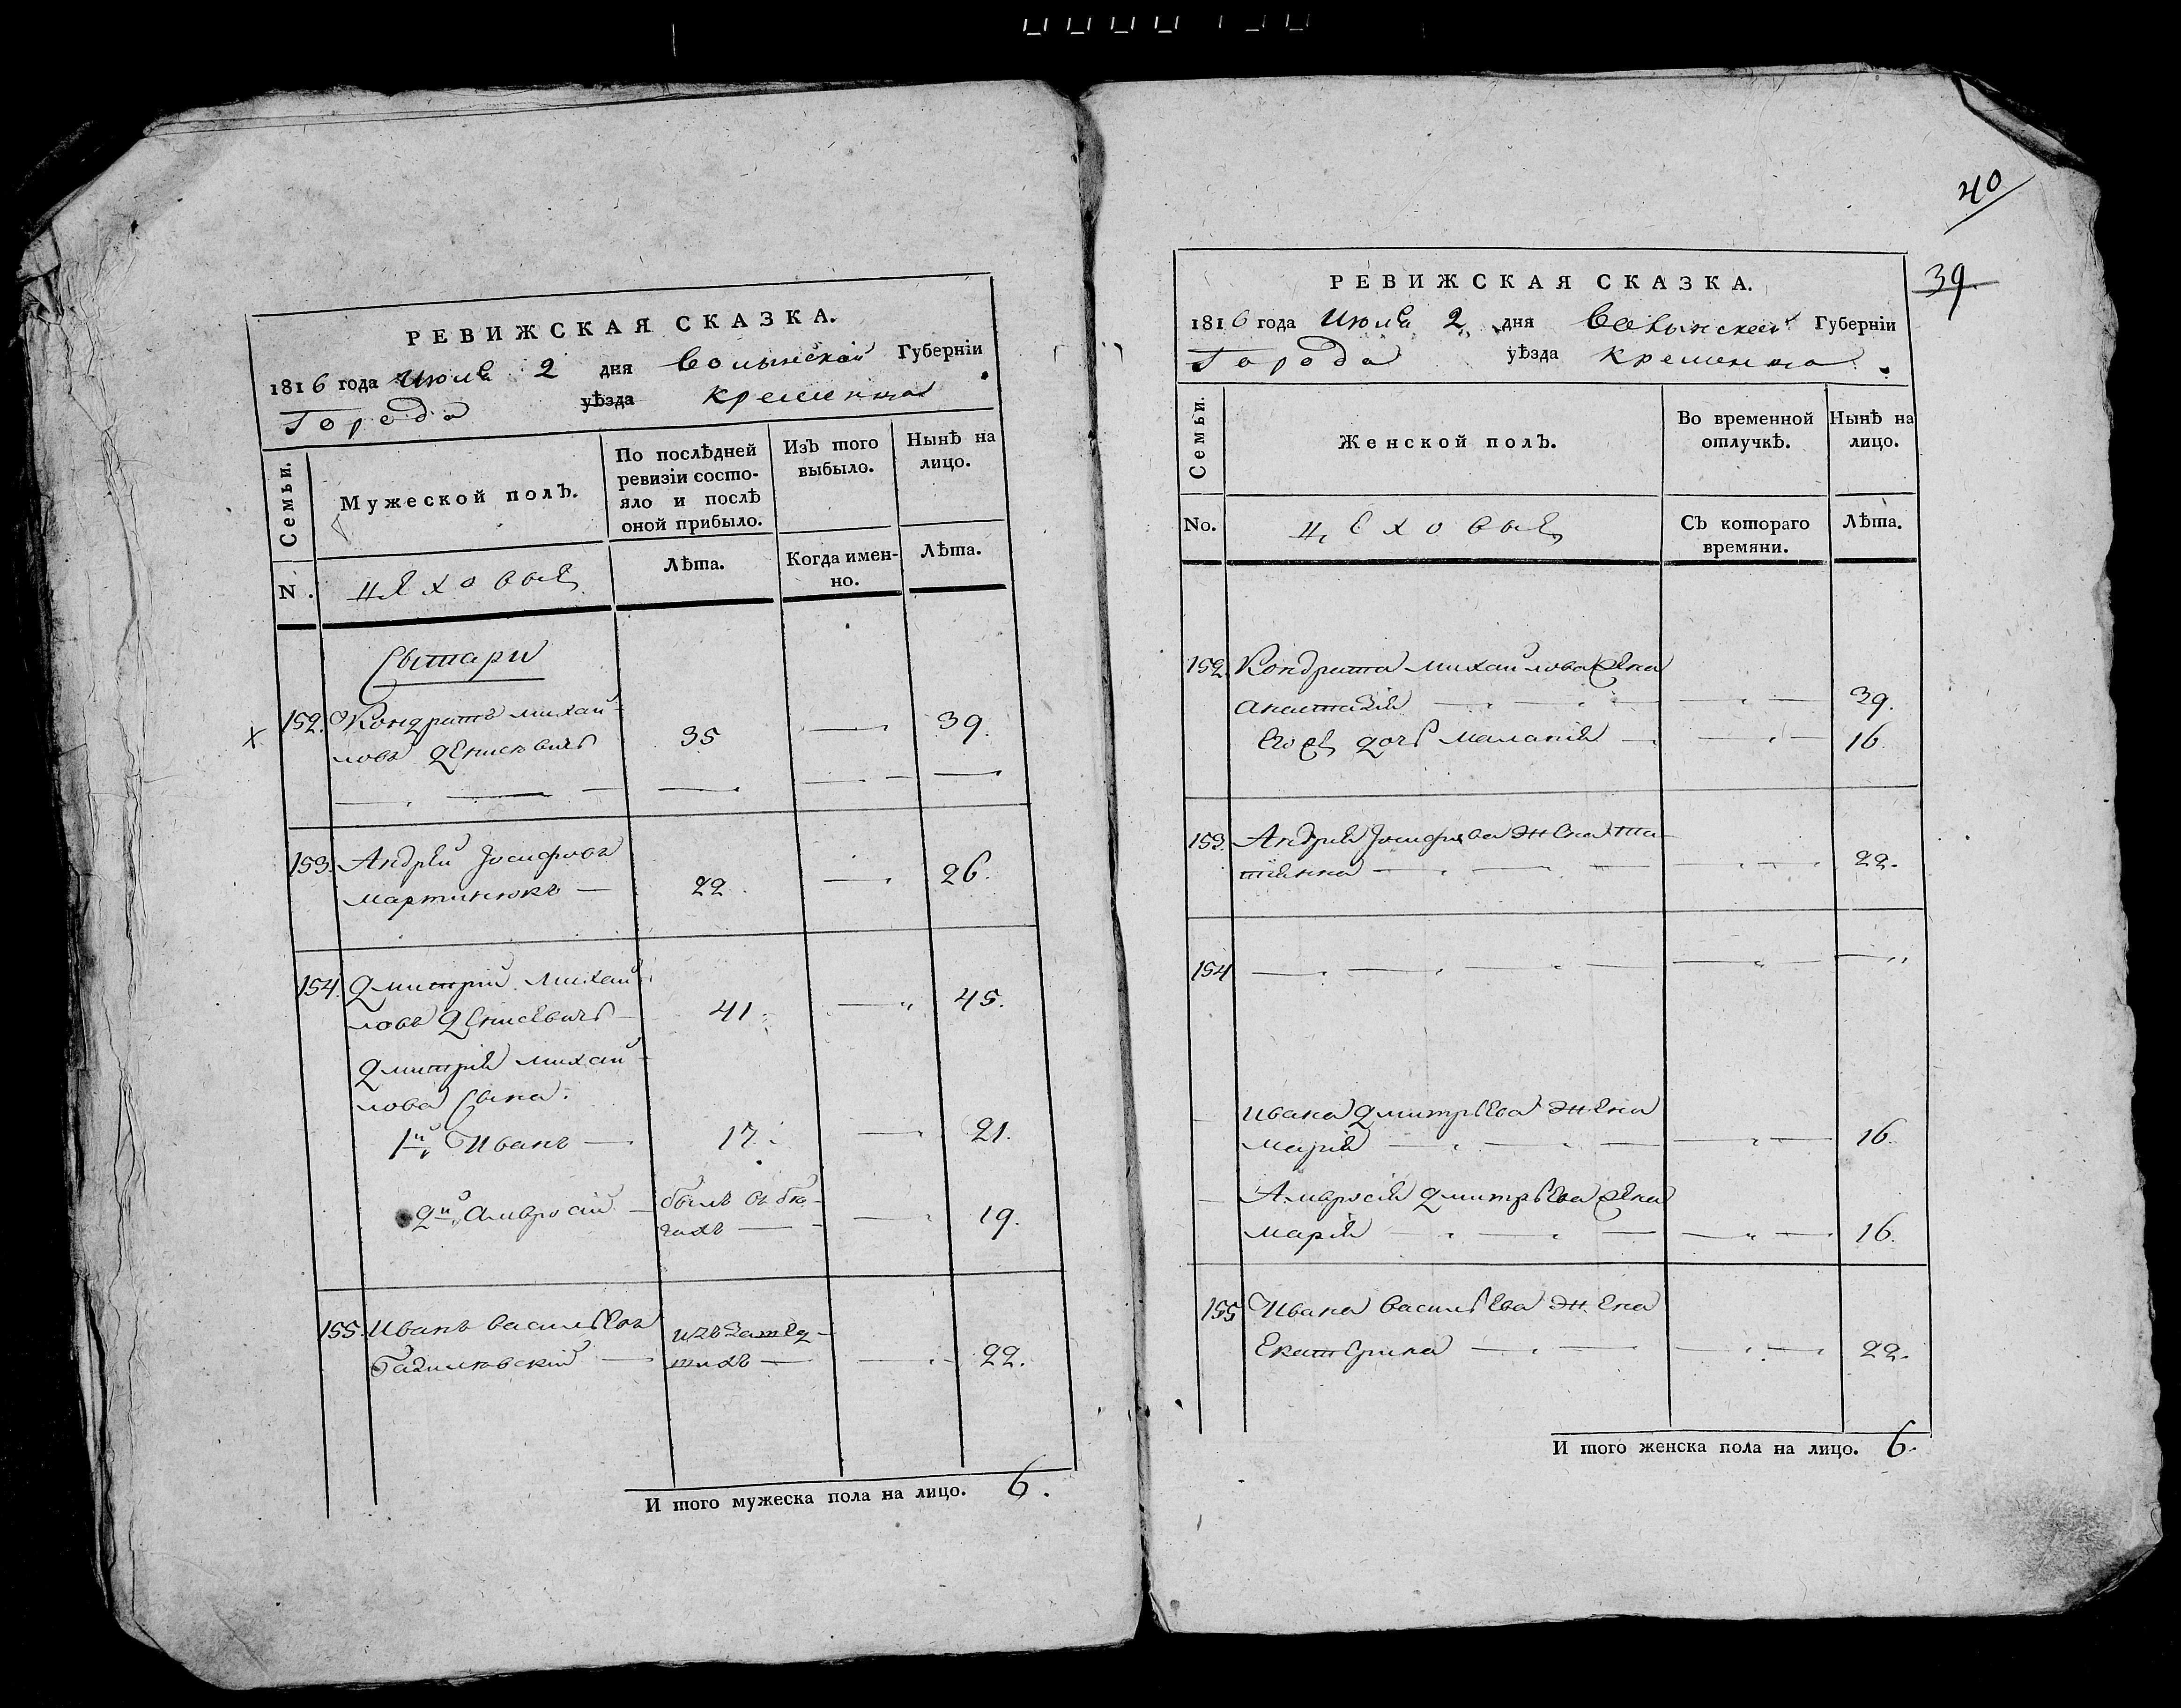 РЕВИЖСКАЯ СКАЗКА.
1816 года Июля 2 дня Волынской Губерніи
Города уѣзда Кременца
Семьи. Мужеской полЪ. По послѣдней ревизіи состояло и послѣ оной прибыло. ИзЪ того выбыло. Нынѣ на лицо.
N. цеховые Лѣта. Когда именно. Лѣта.
Сытари
152. Кондратъ михай-
ловъ денисювичь 35 39.
153. Андрей Іосифовъ
мартинюкъ 22 26.
154. Дмитрій михай-
ловъ денисевичь 41. 45.
Дмитрія михай-
лова сына:
1й Иванъ 17. 21.
2й Амвросій былъ въ бѣ-
гахъ 19.
155. Иванъ васильевъ
22.
И того мужеска пола на лицо. 6.
40
39
РЕВИЖСКАЯ СКАЗКА.
1816 года Июля 2 дня Волынской Губерніи
Города уѣзда Кременца.
Семьи. Женской полЪ. Во временной отлучкѣ. Нынѣ на лицо.
No. цеховые СЪ котораго времяни. Лѣта.
152. Кондрата михайлова жена
анастазія 39.
Его же дочь маланія 16.
153. Андрея Іосифова жена та-
тіянна 22.
154
Ивана дмитрьева жена
марія 16.
Амвросія дмитрьева жена
марія 16.
155 Ивана васильева жена
Екатерина 22.
И того женска пола на лицо. 6.